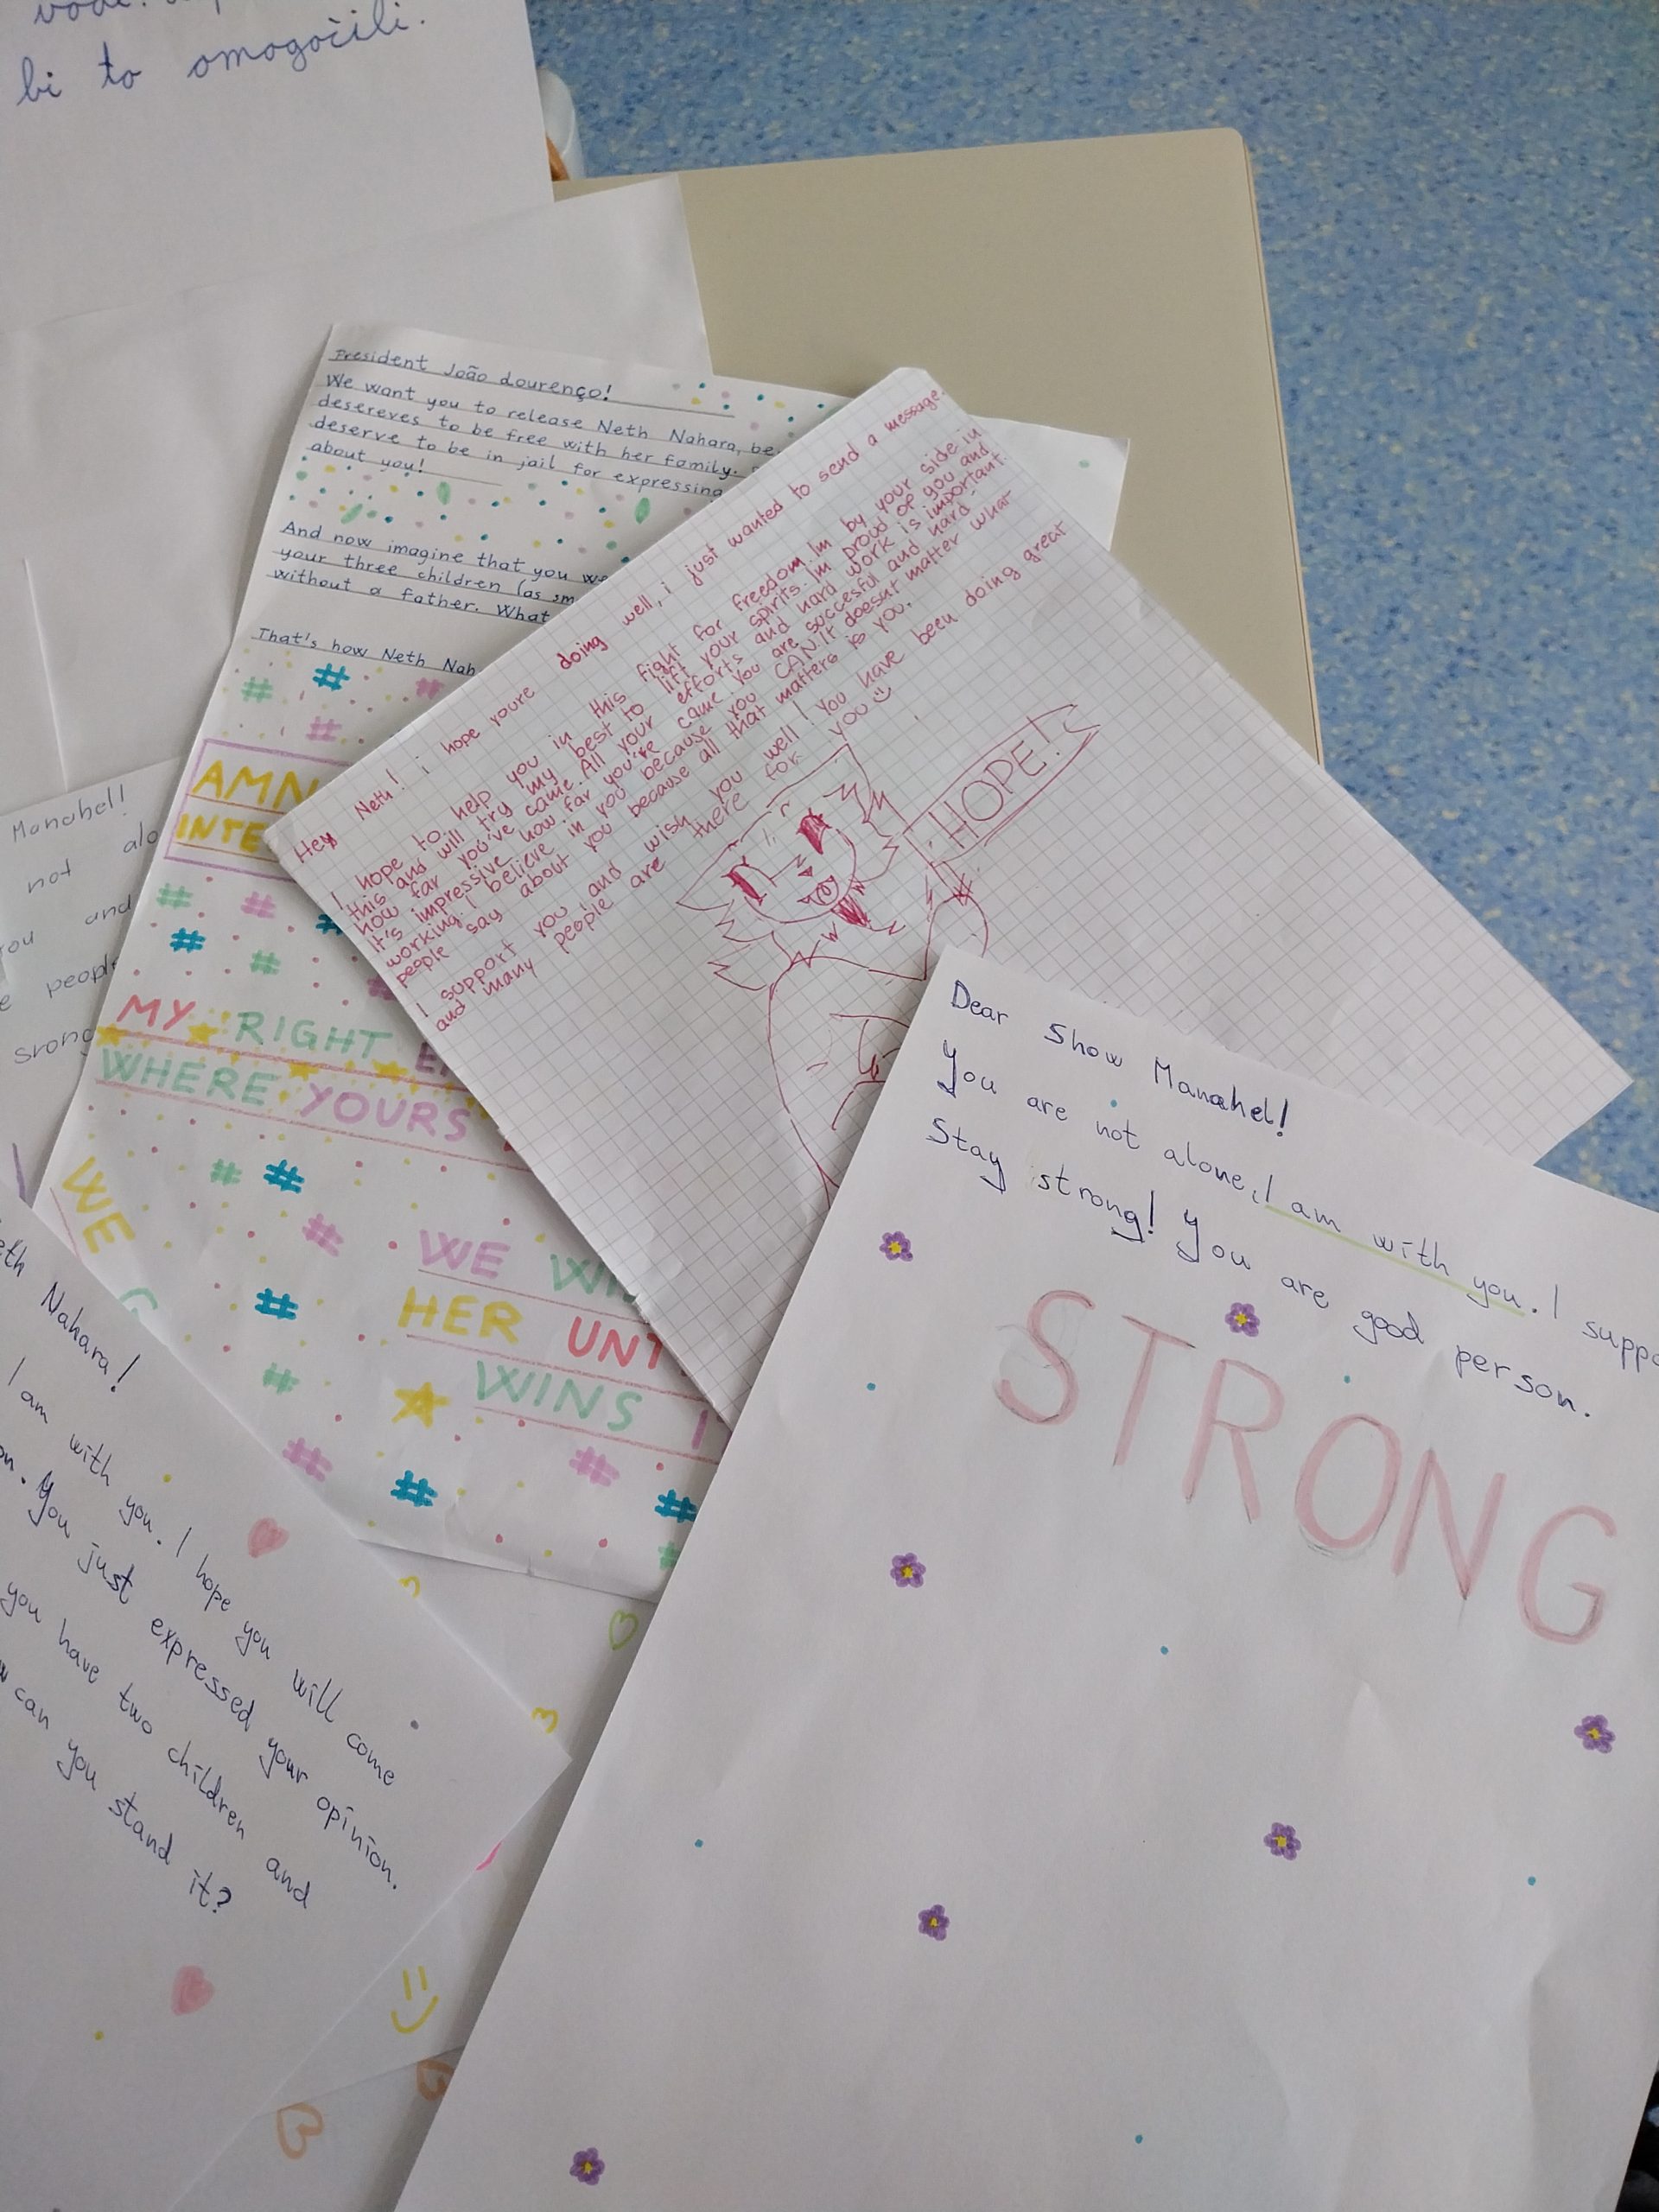 bi to omogočili.
President João Lourenço!
We want you to release Neth Nahara, be
desereves to be free with her family.
deserve to be in jail for expressing
about you!
And now imagine that you we
your three children (as sm
without a father. What
That's how Neth Nah
AMN
INTE
MY RIGHT E
WHERE YOURS
WE
WE WI
HER UNT
WINS !
Hey Neth! i hope youre doing well, i just wanted to send a message.
I hope to help you in this fight for freedom. Im by your side in
this and will try my best to lift your spirits. Im proud of you and
how far you've came. All your efforts and hard work is important.
It's impressive how far you're came. You are succesful and hard-
working. I believe in you because you CAN. It doesnt matter what
people say about you because all that matters is you.
I support you and wish you well! You have been doing great
and many people are there for you
HOPE!
Manahel!
not alo
you and
e people
srong
Dear Show Manahel!
You are not alone, I am with you. I suppo
Stay strong! You are good person.
STRONG
eth Nahara!
I am with you. I hope you will come
on. You just expressed your opinion.
you have two children and
can you stand it?